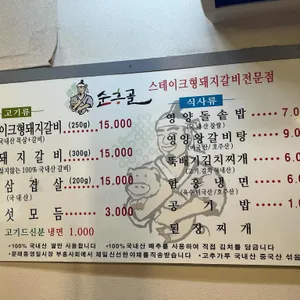 순흥골
스테이크형돼지갈비전문점
고기류
이크형돼지갈비 (250g) 15.000
(국내산 목살+갈비)
돼지갈비 (300g) 15.000
100%국내산갈비)
삼겹살 (200g) 15.000
(국내산)
버섯모듬 3.000
고기드신분 냉면 1.000
식사류
영양돌솥밥 7.0
영양왕갈비탕 9.0
뚝배기김치찌개 6.0
함흥냉면 6.0
공기밥
된장찌개
•100% 국내산 쌀만 사용합니다
•100% 국내산배추를 사용하여 직접 김치를 담급니다
•고추가루 국내산 중국산 섞음